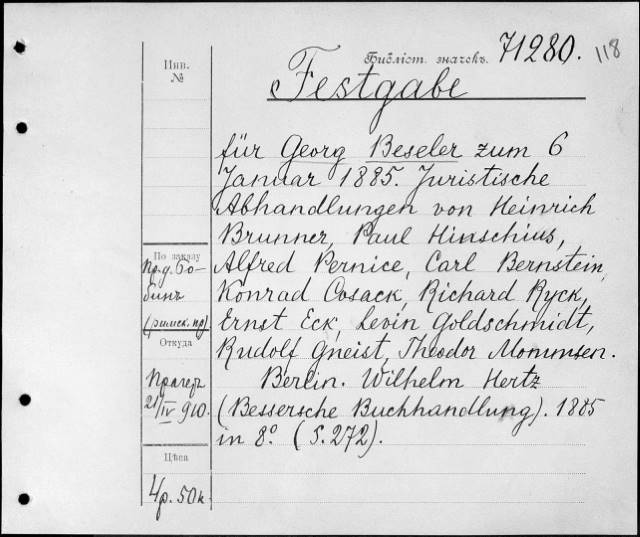 Библіот. значекъ. 71280. 118
Festgabe
für Georg Beseler zum 6
Januar 1885. Juristische
Abhandlungen von Heinrich
Brunner, Paul Hinschius,
Alfred Pernice, Carl Bernstein,
Konrad Cosack, Richard Ryck,
Ernst Eck, Levin Goldschmidt,
Rudolf Gneist, Theodor Mommsen.
Berlin. Wilhelm Hertz
(Bessersche Buchhandlung). 1885
in 8º. (S. 272).
Инв.
№
По заказу
Пр. д. Бо-
бинъ
(римск. пр)
Откуда
Прагеръ
21/IV 910.
Цѣса
4р. 50к